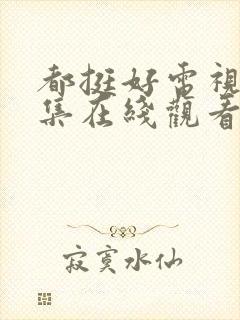 都挺好電視
集在綫觀看
寂寞水仙